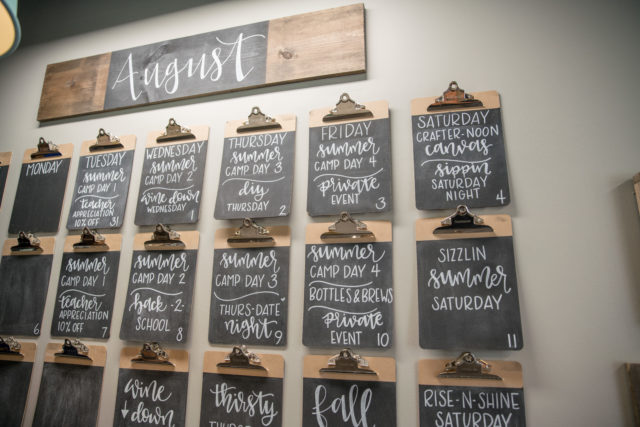 August
MONDAY
TUESDAY
summer
CAMP DAY 1
teacher
APPRECIATION
10% OFF 31
WEDNESDAY
summer
CAMP DAY 2
wine down
WEDNESDAY 1
THURSDAY
summer
CAMP DAY 3
diy
THURSDAY 2
FRIDAY
summer
CAMP DAY 4
private
EVENT 3
SATURDAY
CRAFTER-NOON
canvas
sippin
SATURDAY
NIGHT 4
6
summer
CAMP DAY 1
teacher
APPRECIATION
10% OFF 7
summer
CAMP DAY 2
back-2-
SCHOOL 8
summer
CAMP DAY 3
THURS-DATE
night 9
summer
CAMP DAY 4
BOTTLES & BREWS
private
EVENT 10
SIZZLIN
summer
SATURDAY
11
wine
down
thirsty
THURSDAY
fall
RISE-N-SHINE
SATURDAY